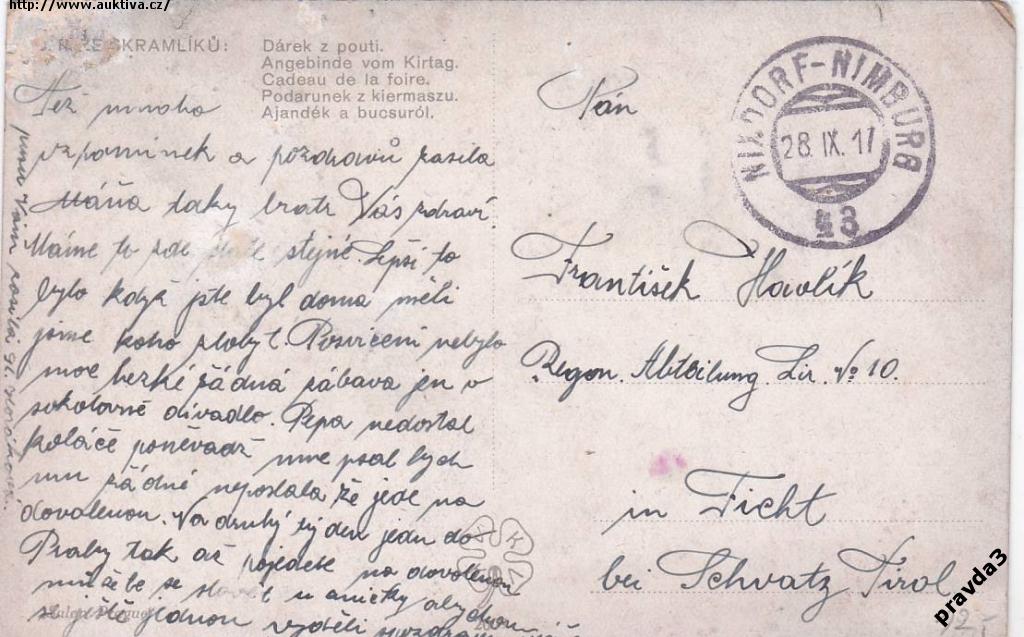 http://www.auktiva.cz/
SKRAMLÍKŮ: Dárek z pouti.
Angebinde vom Kirtag.
Cadeau de la foire.
Podarunek z kiermaszu.
Ajandék a bucsuról.
Též mnoho
vzpomínek a pozdravů zasílá
Máňa taky bratr Vás zdraví
Máme to zde stejné. Lepší to
bylo když jste byl doma měli
jsme koho zlobyt. Posvícení nebylo
moc hezké žádná zábava jen v
sokolovně divadlo. Pepa nedostal
koláče poněvadž mne psal bych
mu žádné neposlala že jede na
dovolenou. Na druhý týden jedu do
Prahy tak až pojedete na dovolenou
můžete se u aničky abychom
se ještě jednou
Vám posílá
Pán
NIXDORF-NIMBURG
28. IX. 17
43
František Havlík
Regon. Abteilung Lir. No 10.
in Ficht
bei Schwatz Tirol
pravda3